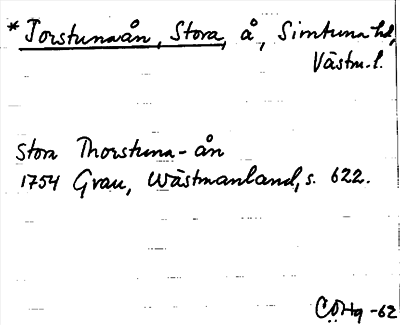 * Torstunaån, Stora, å, Simtuna hd,
Västm. l.
Stora Thorstuna-ån
1754 Grau, Wästmanland, s. 622.
CÖHg -62